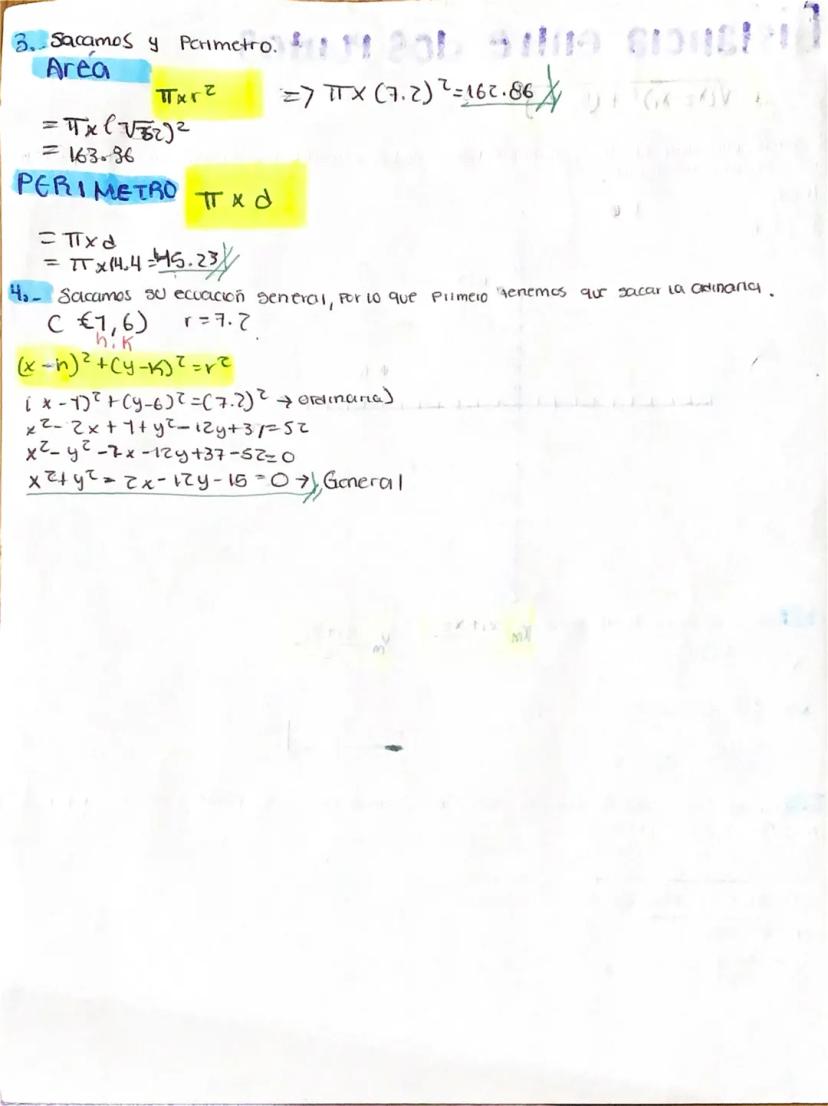 3.- Sacamos y Perimetro.
Area
π x r² => π x (7.2)² = 162.86
= π x (√52)²
= 163.36
PERIMETRO π x d
= π x d
= π x 14.4 = 45.23
4.- Sacamos su ecuación general, por lo que primero tenemos que sacar la ordinaria.
C (1,6) r = 7.2
h, k
(x-h)² + (y-k)² = r²
(x-1)² + (y-6)² = (7.2)² → ordinaria)
x² - 2x + 1 + y² - 12y + 37 = 52
x² - y² - 2x - 12y + 37 - 52 = 0
x² + y² - 2x - 12y - 15 = 0 → General